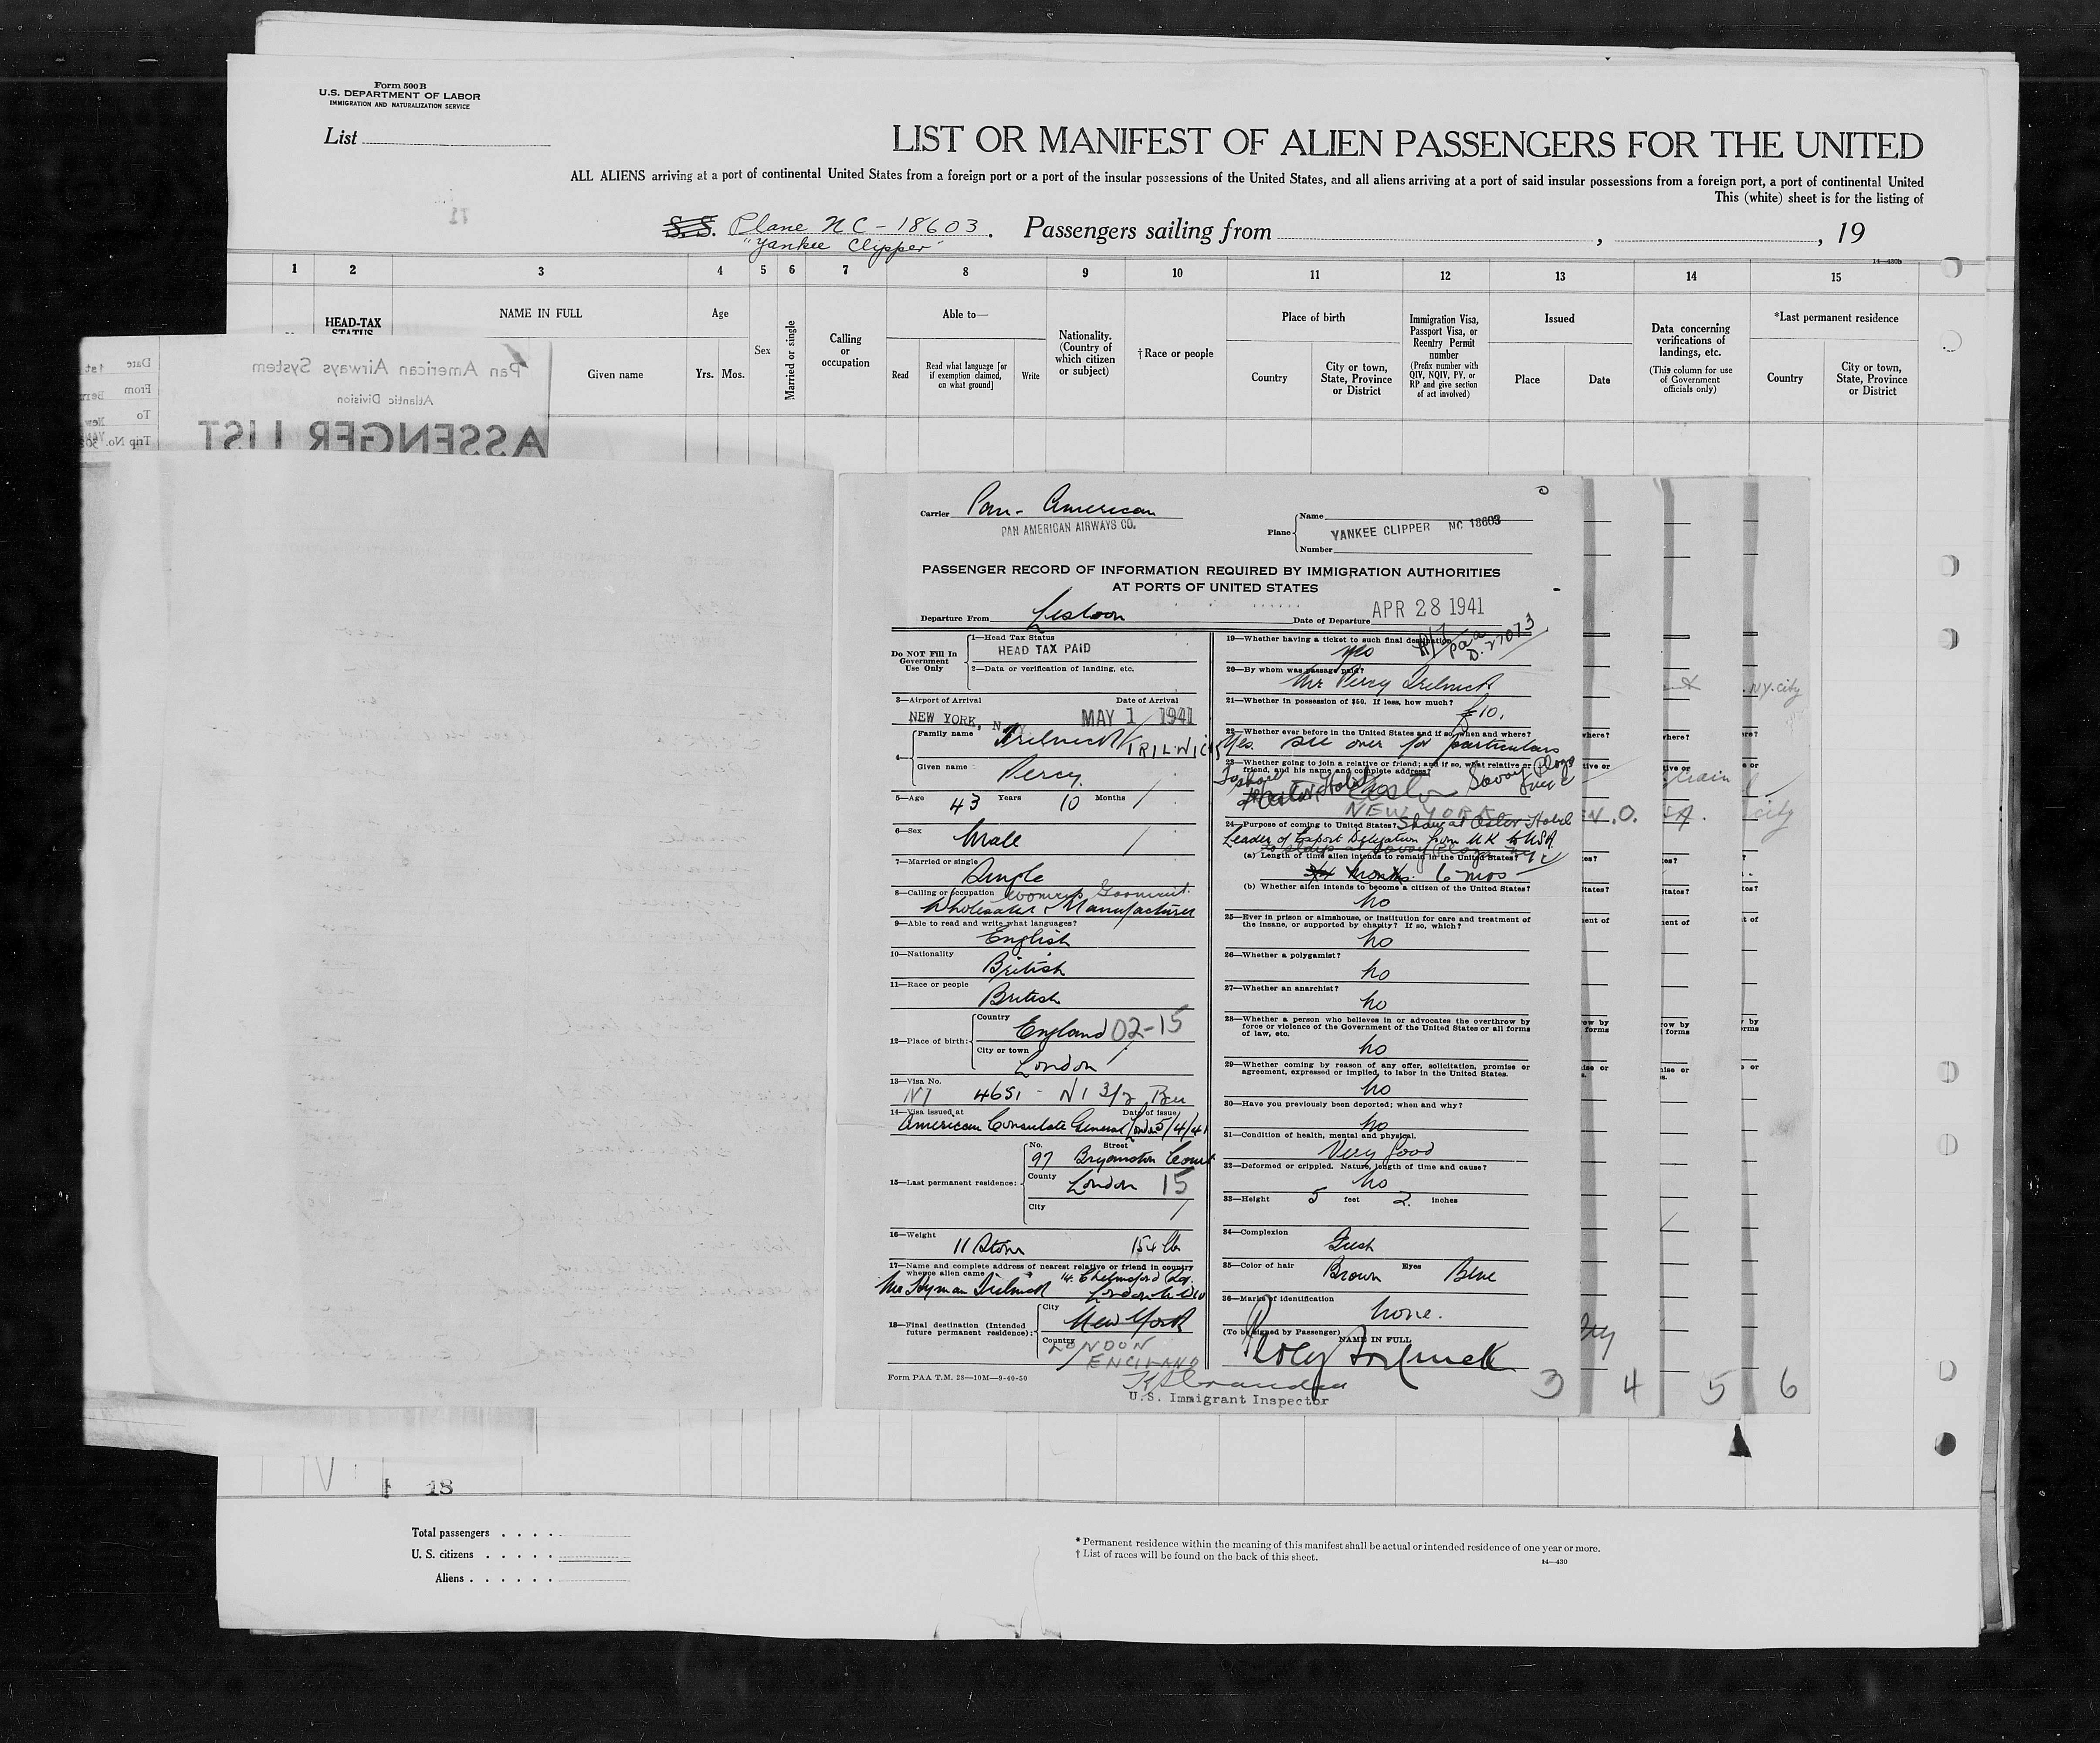 Form 500 B
U.S. DEPARTMENT OF LABOR
IMMIGRATION AND NATURALIZATION SERVICE
List
LIST OR MANIFEST OF ALIEN PASSENGERS FOR THE UNITED
ALL ALIENS arriving at a port of continental United States from a foreign port or a port of the insular possessions of the United States, and all aliens arriving at a port of said insular possessions from a foreign port, a port of continental United
This (white) sheet is for the listing of
S.S. Plane NC-18603. Passengers sailing from , , 19
"Yankee Clipper"
14—430b
1 2 3 4 5 6 7 8 9 10 11 12 13 14 15
HEAD-TAX STATUS
NAME IN FULL
Given name
Age
Yrs. Mos.
Sex
Married or single
Calling or occupation
Able to—
Read
Read what language [or if exemption claimed, on what ground]
Write
Nationality. (Country of which citizen or subject)
† Race or people
Place of birth
Country
City or town, State, Province or District
Immigration Visa, Passport Visa, or Reentry Permit number
(Prefix number with QIV, NQIV, PV, or RP and give section of act involved)
Issued
Place
Date
Data concerning verifications of landings, etc.
(This column for use of Government officials only)
*Last permanent residence
Country
City or town, State, Province or District
Pan American Airways System
Atlantic Division
ASSENGER LIST
Date
From
To
Trip No.
Carrier Pan-American
PAN AMERICAN AIRWAYS CO.
Plane
Name
YANKEE CLIPPER NC 18603
Number
PASSENGER RECORD OF INFORMATION REQUIRED BY IMMIGRATION AUTHORITIES
AT PORTS OF UNITED STATES
Departure From Lisbon
Date of Departure APR 28 1941
Do NOT Fill In Government Use Only
1—Head Tax Status
HEAD TAX PAID
2—Data or verification of landing, etc.
3—Airport of Arrival Date of Arrival
NEW YORK, N.Y. MAY 1 1941
4— Family name Trilnick TRILNICK
Given name Percy
5—Age 43 Years 10 Months
6—Sex
Male
7—Married or single
Single
8—Calling or occupation
Wholesaler & Manufacturer
9—Able to read and write what languages?
English
10—Nationality
British
11—Race or people
British
12—Place of birth:
Country
England 02-15
City or town
London
13—Visa No.
4651 - NI 3/2
14—Visa issued at Date of issue
American Consulate General London 5/4/41
15—Last permanent residence:
No. Street
97 Bryanston Court
County
London 15
City
16—Weight
11 Stone 154 lb
17—Name and complete address of nearest relative or friend in country whence alien came
Mr Hyman Trilnick 14. Chelmsford
London
18—Final destination (Intended future permanent residence):
City
New York
Country
LONDON
ENGLAND
Form PAA T.M. 28—10M—9-40-50
19—Whether having a ticket to such final destination
yes
20—By whom was passage paid?
Mr Percy Trilnick
21—Whether in possession of $50. If less, how much?
£10.
22—Whether ever before in the United States and if so, when and where?
Yes. see over for particulars
23—Whether going to join a relative or friend; and if so, what relative or friend, and his name and complete address?
Savoy Plaza
NEW YORK
24—Purpose of coming to United States?
Leader of Export Delegation from UK to USA
(a) Length of time alien intends to remain in the United States?
Six Months. 6 mos
(b) Whether alien intends to become a citizen of the United States?
no
25—Ever in prison or almshouse, or institution for care and treatment of the insane, or supported by charity? If so, which?
no
26—Whether a polygamist?
no
27—Whether an anarchist?
no
28—Whether a person who believes in or advocates the overthrow by force or violence of the Government of the United States or all forms of law, etc.
no
29—Whether coming by reason of any offer, solicitation, promise or agreement, expressed or implied, to labor in the United States.
no
30—Have you previously been deported; when and why?
no
31—Condition of health, mental and physical.
Very Good
32—Deformed or crippled. Nature, length of time and cause?
no
33—Height 5 feet 2 inches
34—Complexion
35—Color of hair Brown Eyes Blue
36—Marks of identification
none.
(To be signed by Passenger)
NAME IN FULL
Percy Trilnick
U.S. Immigrant Inspector
3 4 5 6
N.Y. city
city
18
Total passengers
U. S. citizens
Aliens
* Permanent residence within the meaning of this manifest shall be actual or intended residence of one year or more.
† List of races will be found on the back of this sheet.
14—430